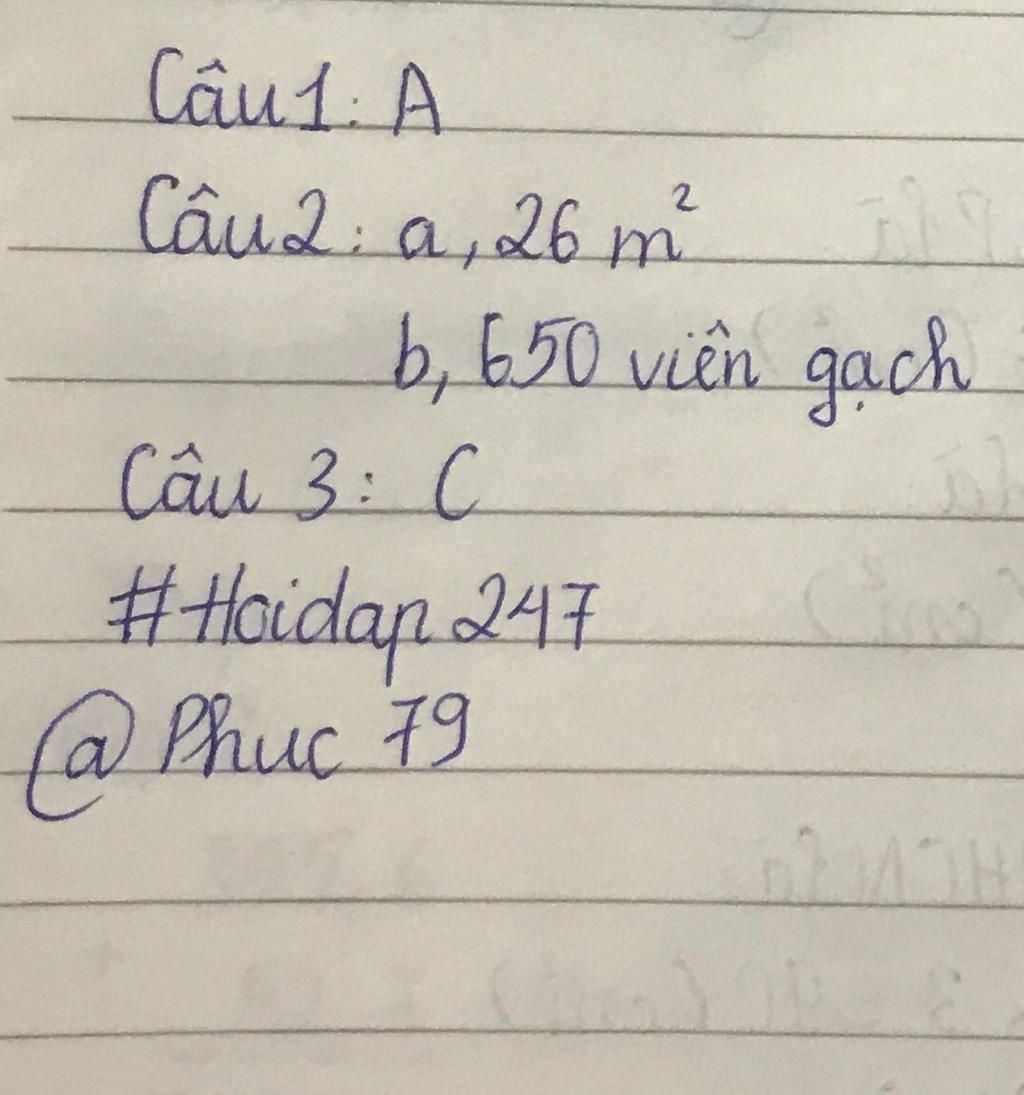 Câu1: A
Câu2: a, 26 m²
b, 650 viên gạch
Câu 3: C
#Hoidap 247
@Phuc 79